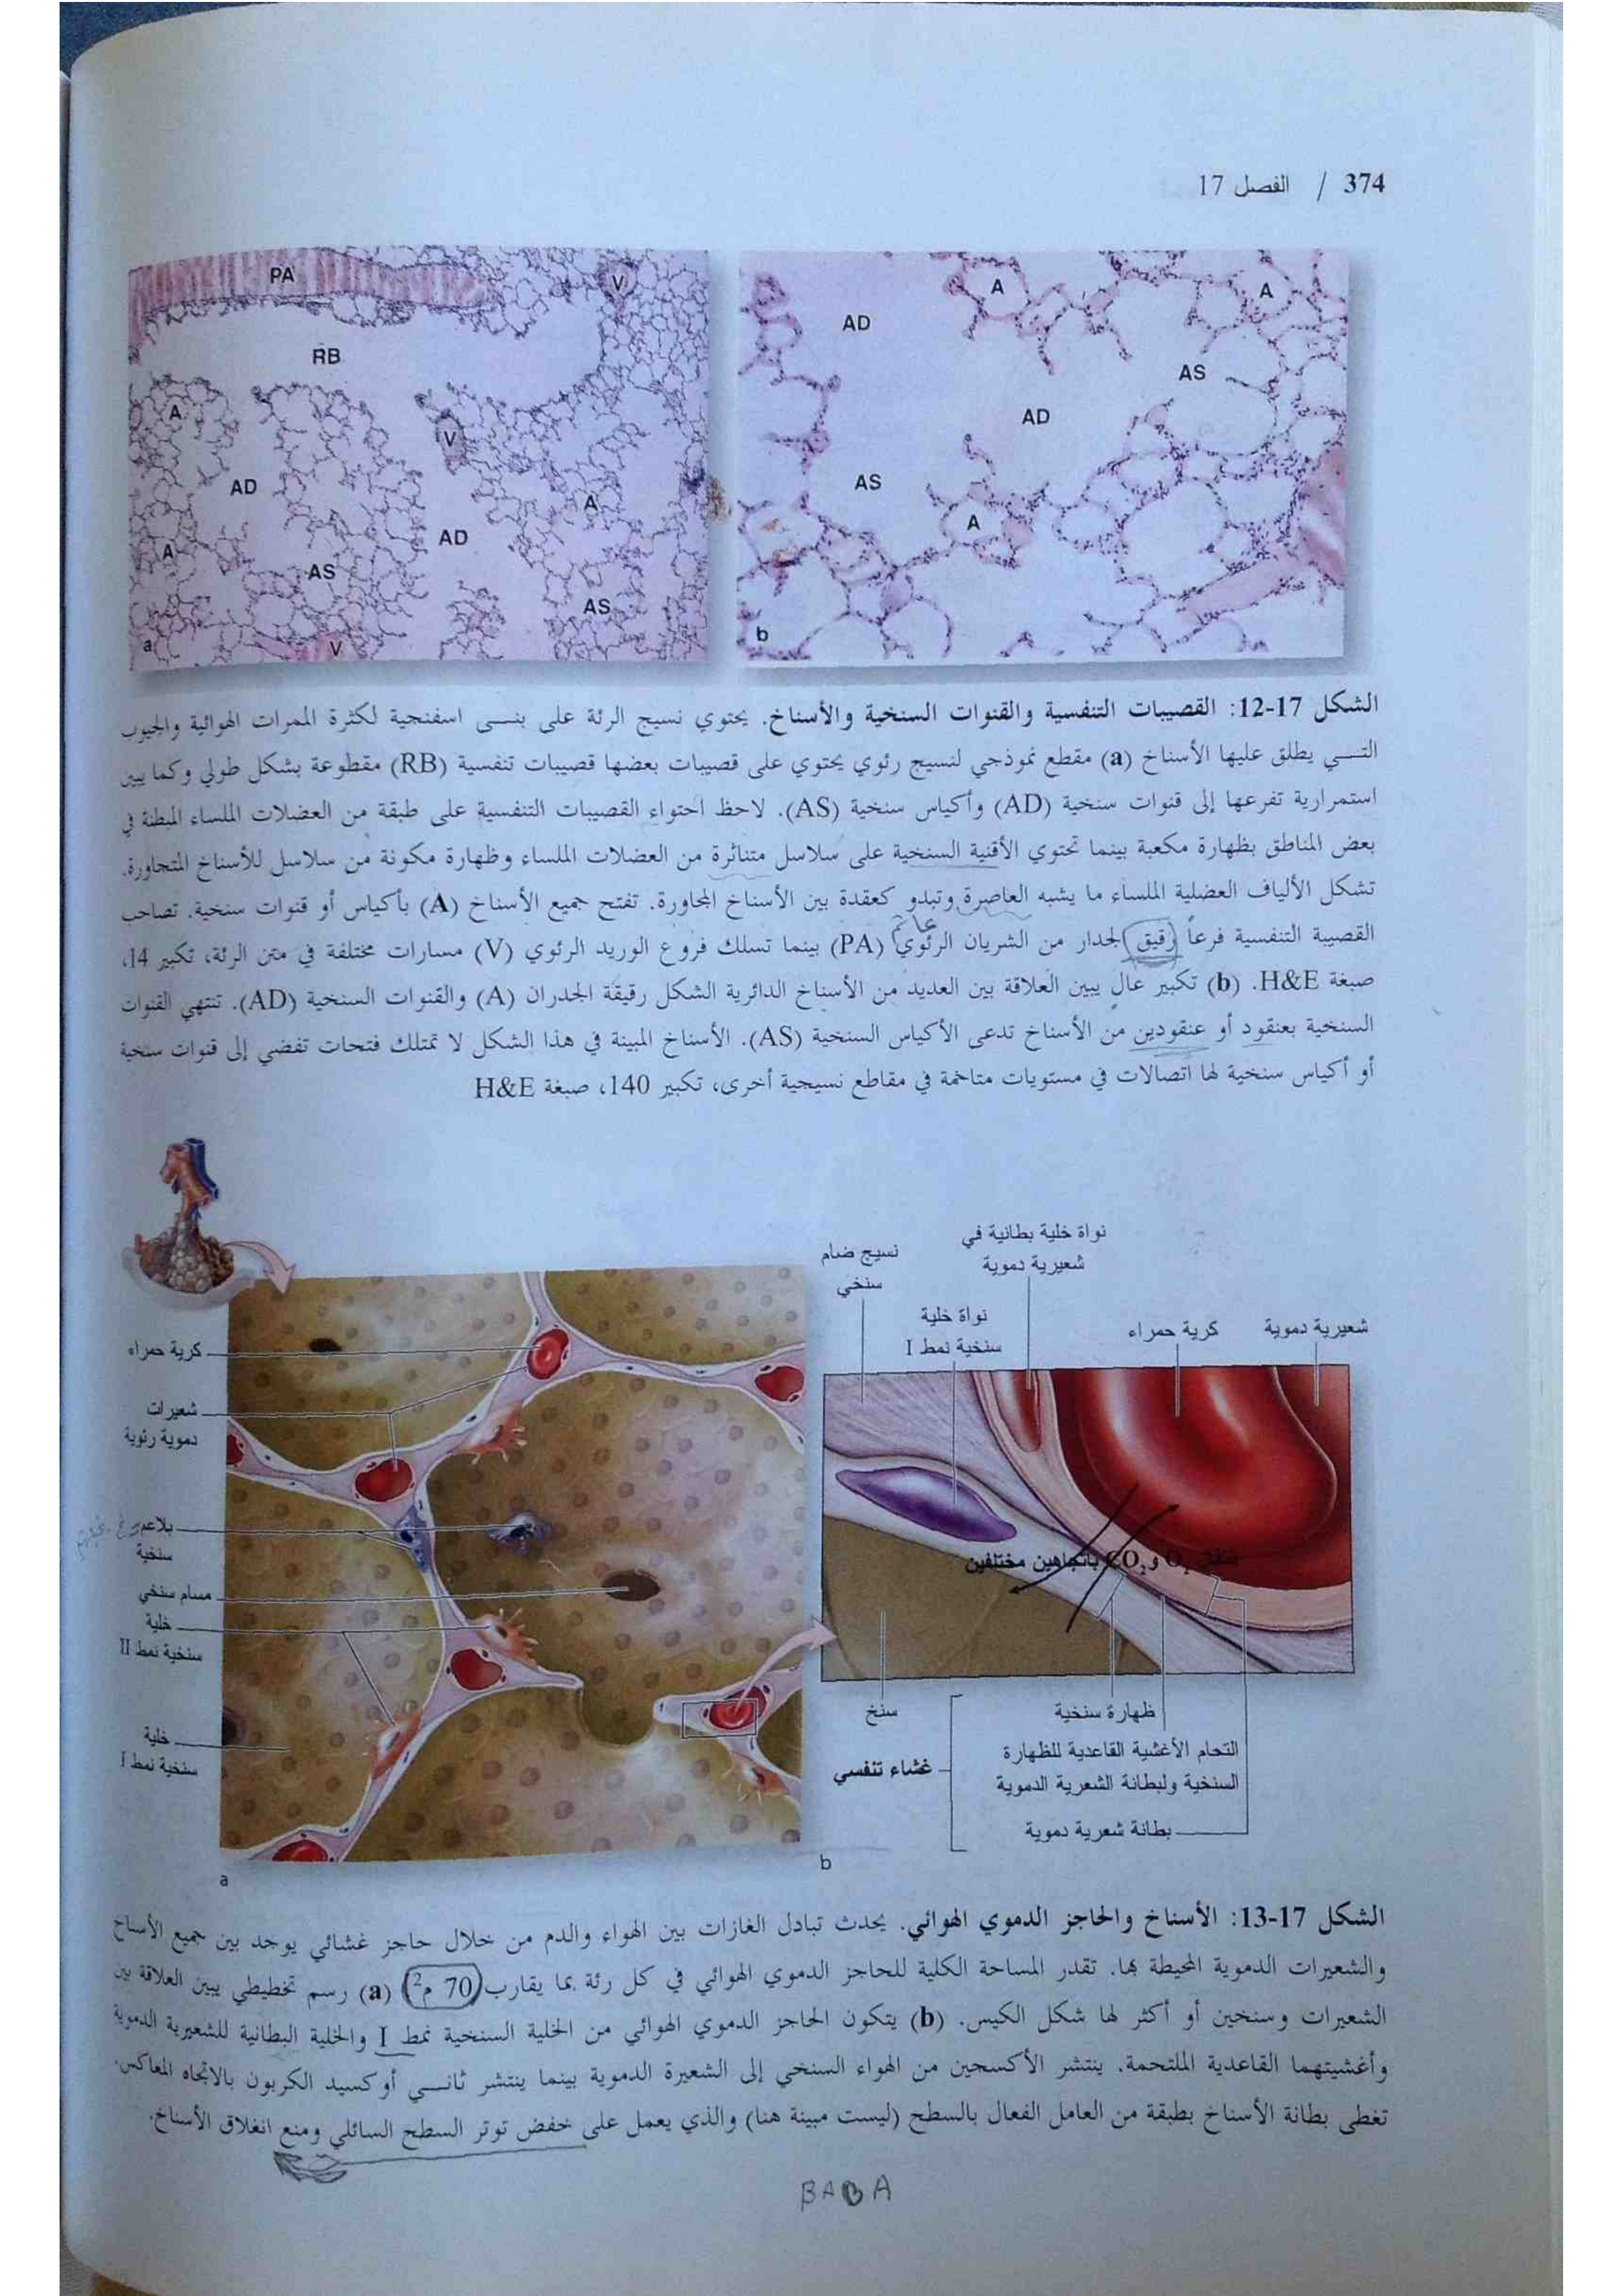 374 / الفصل 17
PA
V
RB
A
V
AD
A
AD
A
AS
AS
V
a
A
A
AD
AS
AD
AS
A
b
الشكل 17-12: القصيبات التنفسية والقنوات السنخية والأسناخ. يحتوي نسيج الرئة على بنــى اسفنجية لكثرة الممرات الهوائية والجيوب
التــي يطلق عليها الأسناخ (a) مقطع نموذجي لنسيج رئوي يحتوي على قصيبات بعضها قصيبات تنفسية (RB) مقطوعة بشكل طولي وكما يبين
استمرارية تفرعها إلى قنوات سنخية (AD) وأكياس سنخية (AS). لاحظ احتواء القصيبات التنفسية على طبقة من العضلات الملساء المبطنة في
بعض المناطق بظهارة مكعبة بينما تحتوي الأقنية السنخية على سلاسل متناثرة من العضلات الملساء وظهارة مكونة من سلاسل للأسناخ المتجاورة.
تشكل الألياف العضلية الملساء ما يشبه العاصرة وتبدو كعقدة بين الأسناخ المجاورة. تفتح جميع الأسناخ (A) بأكياس أو قنوات سنخية. تصاحب
القصيبة التنفسية فرعاً رقيق الجدار من الشريان الرئوي (PA) بينما تسلك فروع الوريد الرئوي (V) مسارات مختلفة في متن الرئة، تكبير 14،
صبغة H&E. (b) تكبير عالٍ يبين العلاقة بين العديد من الأسناخ الدائرية الشكل رقيقة الجدران (A) والقنوات السنخية (AD). تنتهي القنوات
السنخية بعنقود أو عنقودين من الأسناخ تدعى الأكياس السنخية (AS). الأسناخ المبينة في هذا الشكل لا تمتلك فتحات تفضي إلى قنوات سنخية
أو أكياس سنخية لها اتصالات في مستويات متاخمة في مقاطع نسيجية أخرى، تكبير 140، صبغة H&E
كرية حمراء
شعيرات
دموية رئوية
بلاعم
سنخية
مسام سنخي
خلية
سنخية نمط II
خلية
سنخية نمط I
a
نسيج ضام
سنخي
نواة خلية بطانية في
شعيرية دموية
نواة خلية
سنخية نمط I
كرية حمراء
شعيرية دموية
O2 و CO2 باتجاهين مختلفين
سنخ
ظهارة سنخية
التحام الأغشية القاعدية للظهارة
السنخية ولبطانة الشعرية الدموية
بطانة شعرية دموية
غشاء تنفسي
b
الشكل 17-13: الأسناخ والحاجز الدموي الهوائي. يحدث تبادل الغازات بين الهواء والدم من خلال حاجز غشائي يوجد بين جميع الأسناخ
والشعيرات الدموية المحيطة بها. تقدر المساحة الكلية للحاجز الدموي الهوائي في كل رئة بما يقارب 70 م2 (a) رسم تخطيطي يبين العلاقة بين
الشعيرات وسنخين أو أكثر لها شكل الكيس. (b) يتكون الحاجز الدموي الهوائي من الخلية السنخية نمط I والخلية البطانية للشعيرية الدموية
وأغشيتهما القاعدية الملتحمة. ينتشر الأكسجين من الهواء السنخي إلى الشعيرة الدموية بينما ينتشر ثانــي أوكسيد الكربون بالاتجاه المعاكس.
تغطى بطانة الأسناخ بطبقة من العامل الفعال بالسطح (ليست مبينة هنا) والذي يعمل على خفض توتر السطح السائلي ومنع انغلاق الأسناخ.
BABA